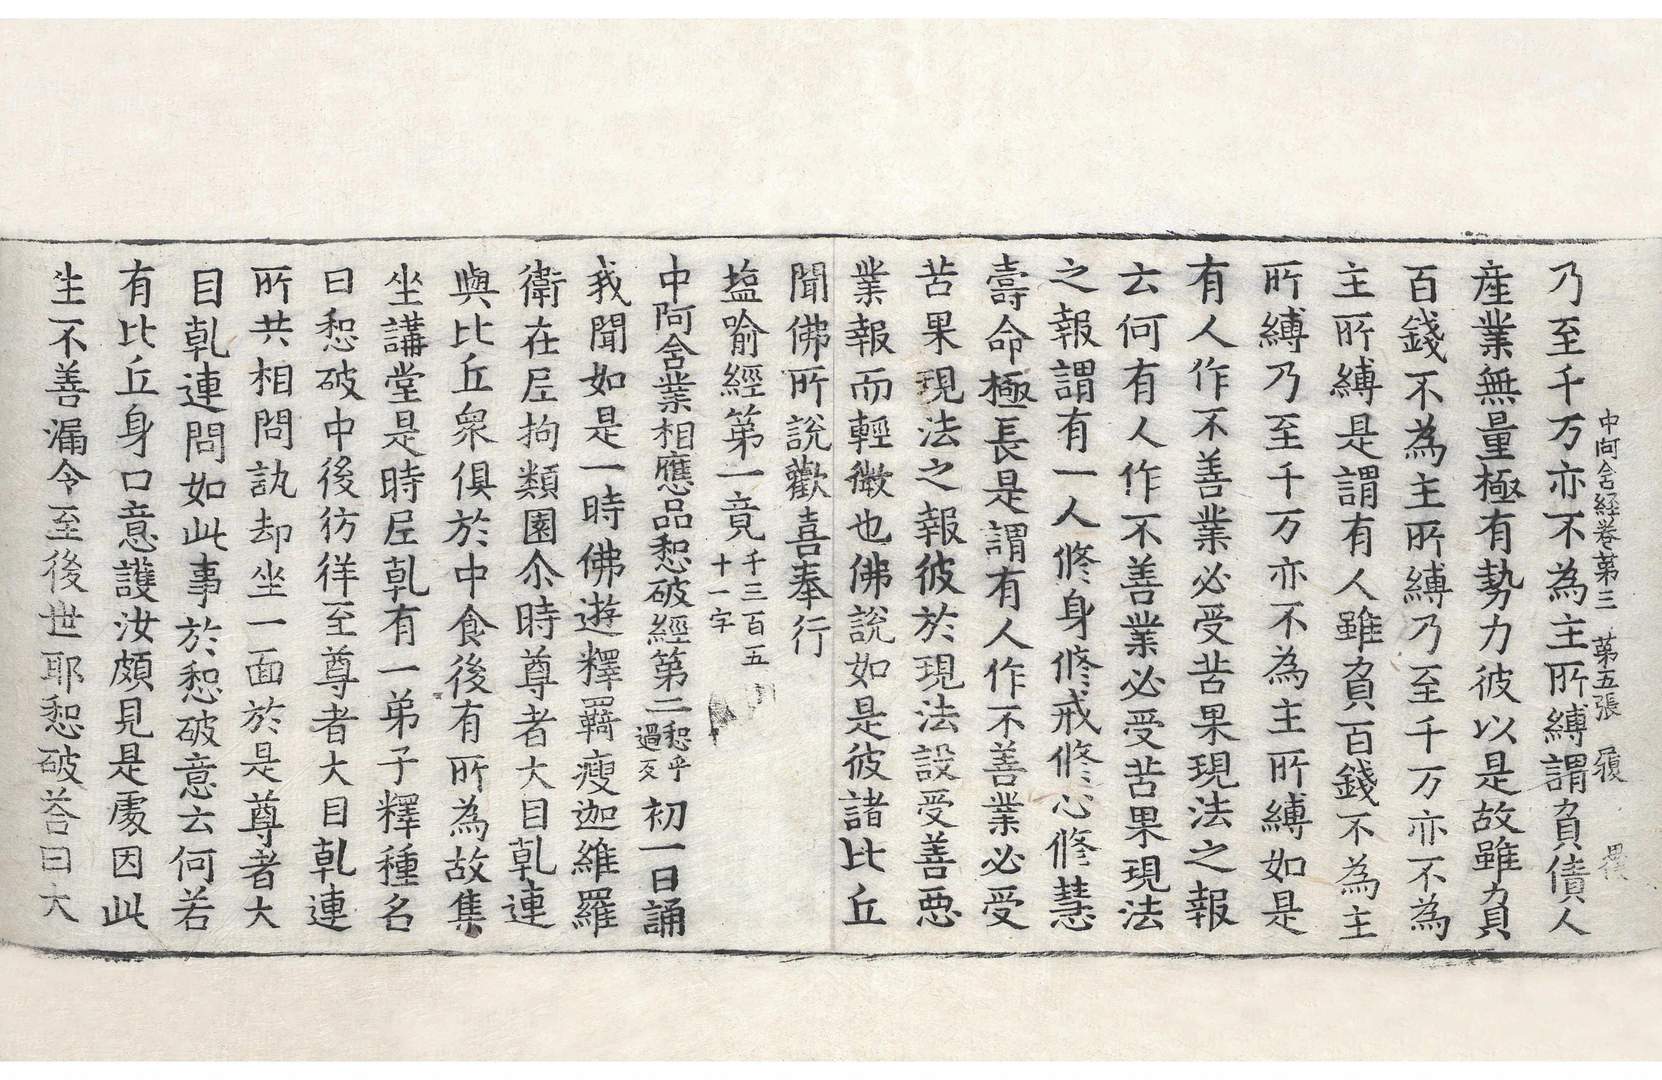 中阿含経卷第三 第五張 履
乃至千万亦不為主所縛謂負債人
産業無量極有勢力彼以是故雖負
百錢不為主所縛乃至千万亦不為
主所縛是謂有人雖負百錢不為主
所縛乃至千万亦不為主所縛如是
有人作不善業必受苦果現法之報
云何有人作不善業必受苦果現法
之報謂有一人修身修戒修心修慧
壽命極長是謂有人作不善業必受
苦果現法之報彼於現法設受善悪
業報而輕微也佛說如是彼諸比丘
聞佛所說歡喜奉行
塩喻經第一竟千三百五十一字
中阿含業相應品惒破經第二惒乎過反初一日誦
我聞如是一時佛遊釋羇瘦迦維羅
衛在𡰱拘類園尒時尊者大目乹連
與比丘衆俱於中食後有所為故集
坐講堂是時𡰱乹有一弟子釋種名
曰惒破中後彷徉至尊者大目乹連
所共相問訊却坐一面於是尊者大
目乹連問如此事於惒破意云何若
有比丘身口意護汝頗見是處因此
生不善漏令至後世耶惒破荅曰大